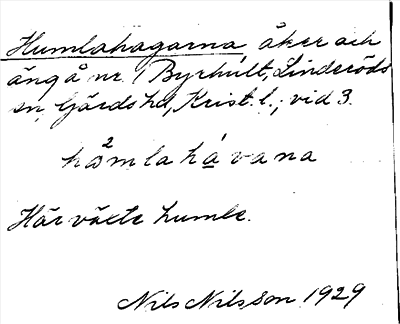 Humlahagarna åker och
äng å nr 1 Byrhult, Linderöds
sn, Gärds hd, Krist. l.; vid 3.
ho2mlahávana
Här växte humle.
Nils Nilsson 1929